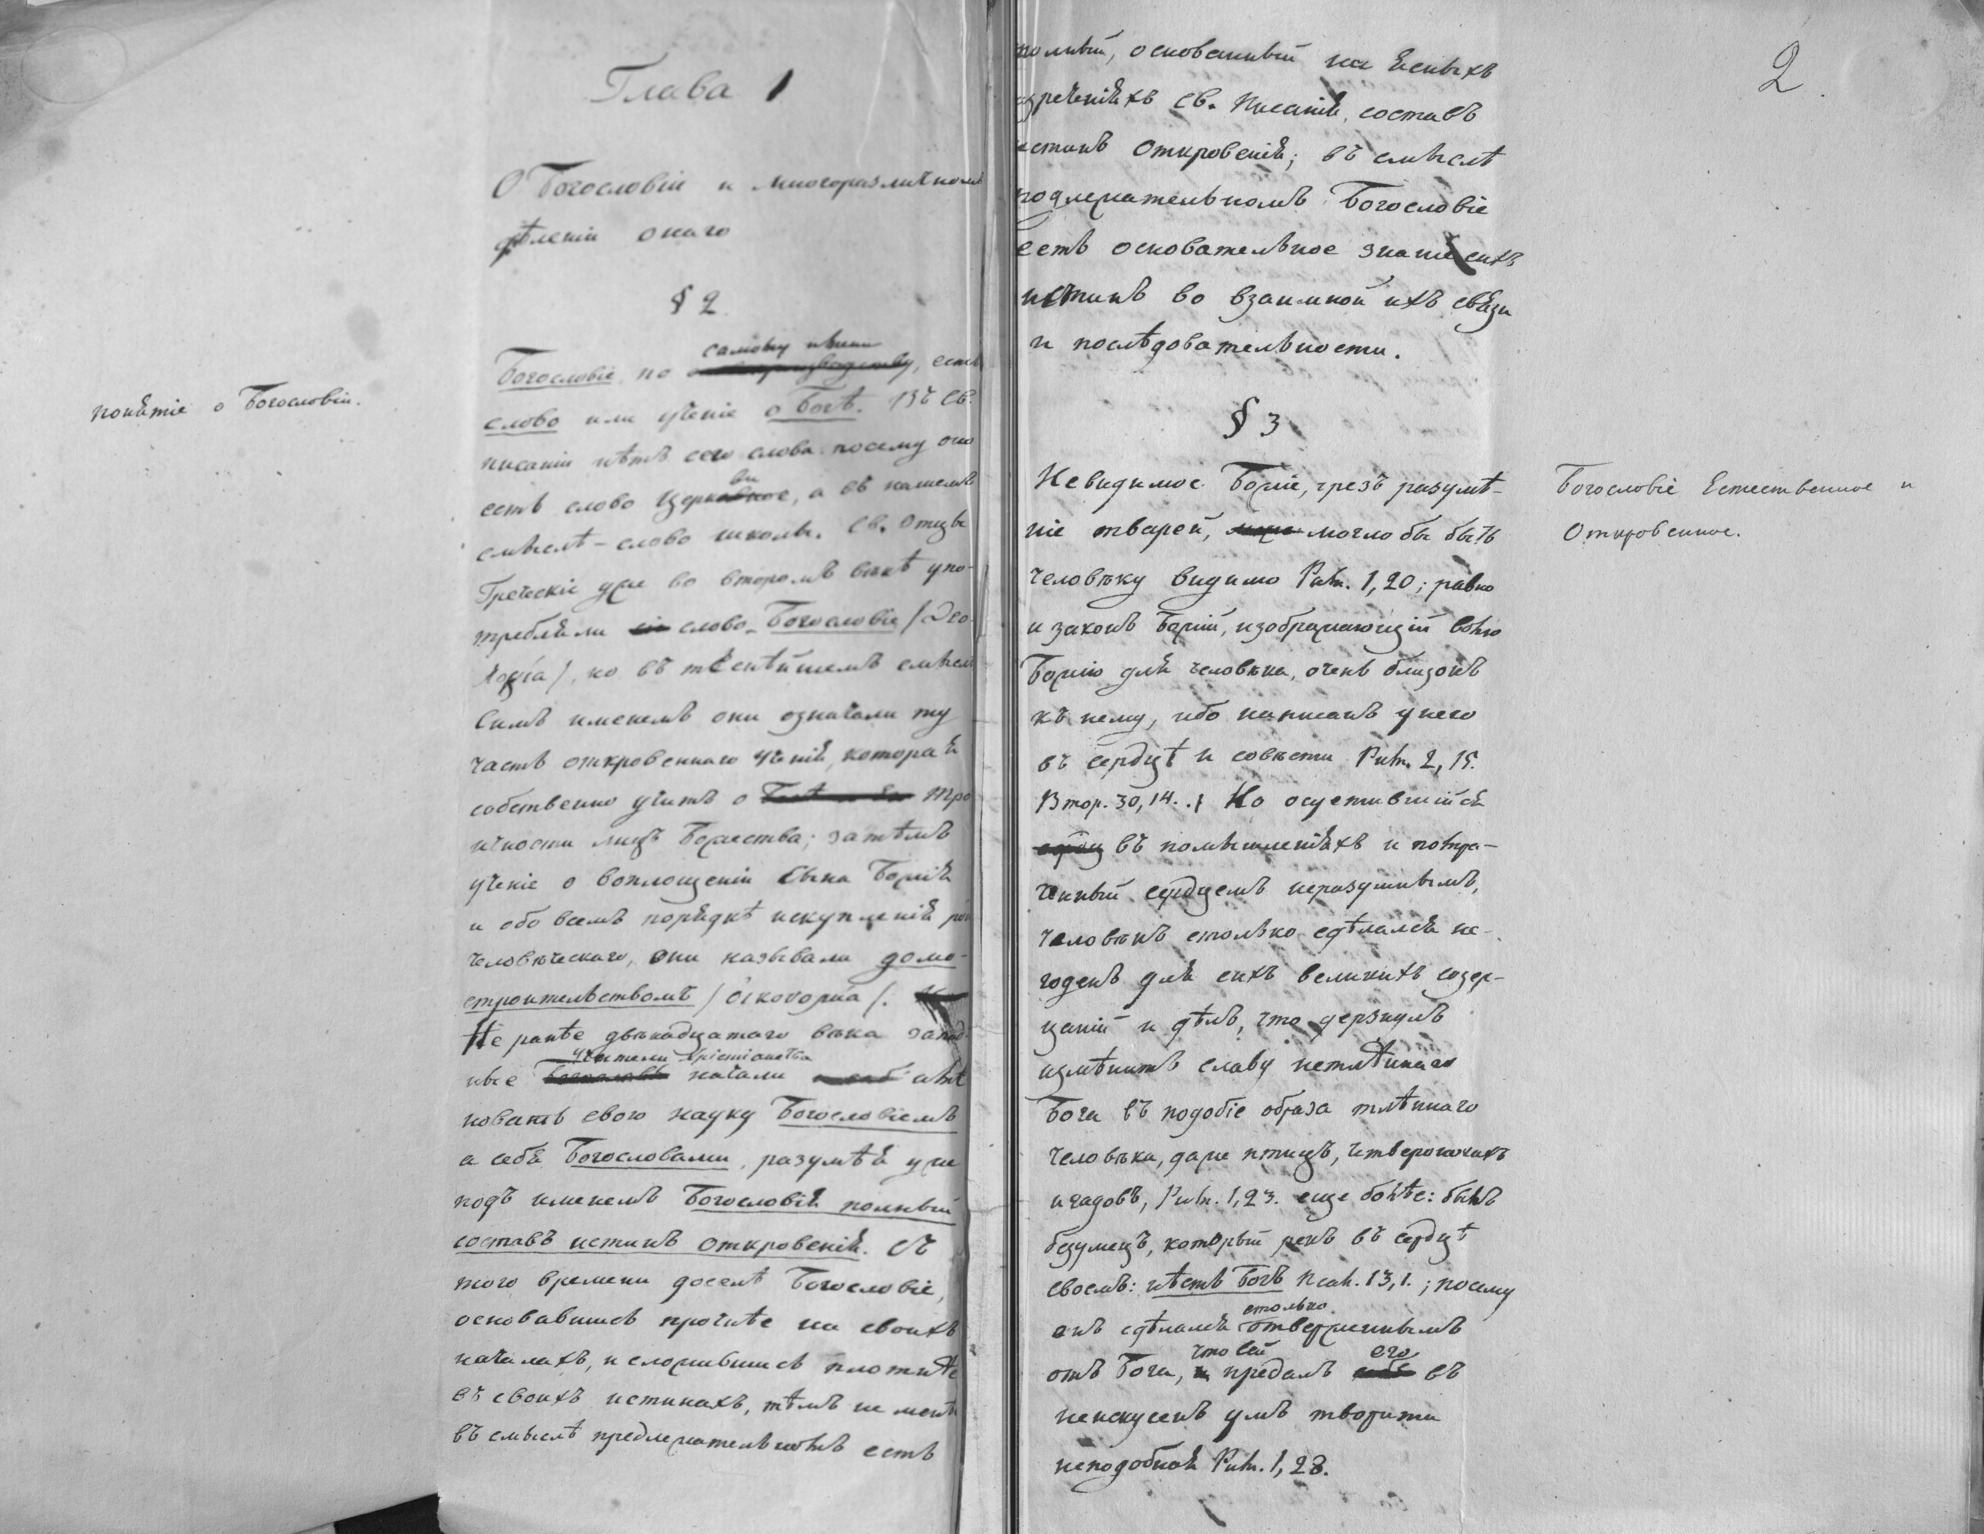 Глава 1
О Богословіи и многоразличномъ
дѣленіи онаго
§ 2
Понятіе о Богословіи.
самому имени
Богословіе, по словопроизводству, есть
слово или ученіе о Богѣ. Въ Св.
писаніи нѣтъ сего слова: посему оно
есть слово Церкви, а въ нашемъ
смыслѣ – слово школы. Св. Отцы
Греческіе уже во второмъ вѣкѣ упо-
требляли слово Богословіе (Θεο
λογία), но въ тѣснѣйшемъ смыслѣ
Симъ именемъ они означали ту
часть откровеннаго ученія, которая
собственно учитъ о Тро
ичности лицъ Божества; затѣмъ
ученіе о воплощеніи Сына Божія
и обо всемъ порядкѣ искупленія рода
человѣческаго, они называли домо-
строительствомъ (οἰκονομία).
Не ранѣе двѣнадцатаго вѣка запад
учители Христіанства
ные Богословы начали имe
новать свою науку Богословіемъ
а себя Богословами, разумѣя уже
подъ именемъ Богословія полный
составъ истинъ откровенія. Съ
того времени доселѣ Богословіе,
основавшись прочнѣе на своихъ
началахъ, и сложившись плотнѣе
въ своихъ истинахъ, тѣмъ не менѣе
въ смыслѣ предлежательномъ есть
2
полный, основанный на ясныхъ
изреченіяхъ Св. Писанія, составъ
истинъ Откровенія; въ смыслѣ
подлежательномъ Богословіе
есть основательное знаніе сихъ
истинъ во взаимной ихъ связи
и послѣдовательности.
§ 3
Богословіе Естественное и
Откровенное.
Невидимое Божіе, чрезъ разумѣ-
ніе тварей, могло бы быть
человѣку видимо Римл. 1, 20; равно
и законъ Божій, изображающій волю
Божію для человѣка, очень близокъ
къ нему, ибо написанъ у него
въ сердцѣ и совѣсти Римл. 2, 15.
Втор. 30, 14. Но осуетившійся
въ помышленіяхъ и помра-
ченный сердцемъ неразумнымъ,
человѣкъ столько сдѣлался не-
годенъ для сихъ великихъ созер-
цаній и дѣлъ, что дерзнулъ
измѣнить славу нетлѣннаго
Бога въ подобіе образа тлѣннаго
человѣка, даже птицъ, четвероногихъ
и гадовъ, Римл. 1, 23. еще болѣе: былъ
безумецъ, который рекъ въ сердцѣ
своемъ: нѣсть Богъ Псал. 13, 1.; посему
столько
онъ сдѣлался отверженнымъ
что сей его
отъ Бога, и предалъ себя въ
неискусенъ умъ творити
неподобная Римл. 1, 28.